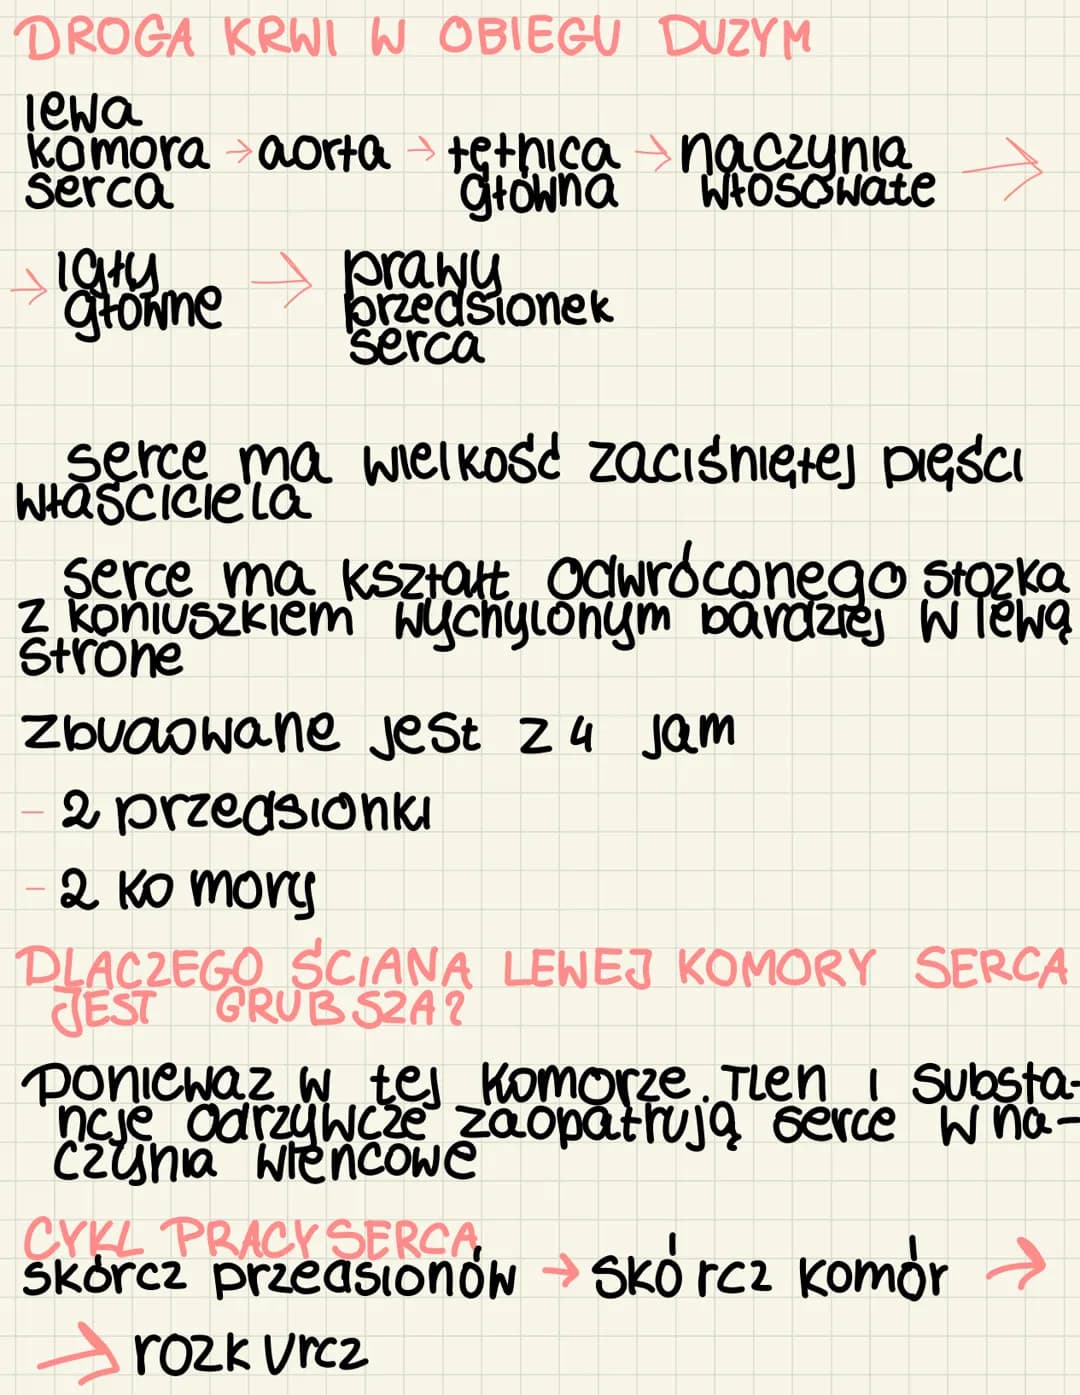 DROGA KRWI W OBIEGU DUZYM
lewa
komora → aorta → tętnica → naczynia →
serca główna włosowate
→ igły → prawy
główne przedsionek
serca
serce ma wielkość zaciśniętej pięści
właściciela
serce ma kształt odwróconego stozka
z koniuszkiem wychylonym bardziej w lewą
strone
zbudowane jest z 4 jam
- 2 przedsionki
- 2 komory
DLACZEGO ŚCIANA LEWEJ KOMORY SERCA
JEST GRUBSZA?
Poniewaz w tej komorze. Tlen i substa-
ncje odrzywcze zaopatrują serce w na-
czynia wieńcowe
CYKL PRACY SERCA
skórcz przedsionów → skórcz komór →
→ rozkurcz